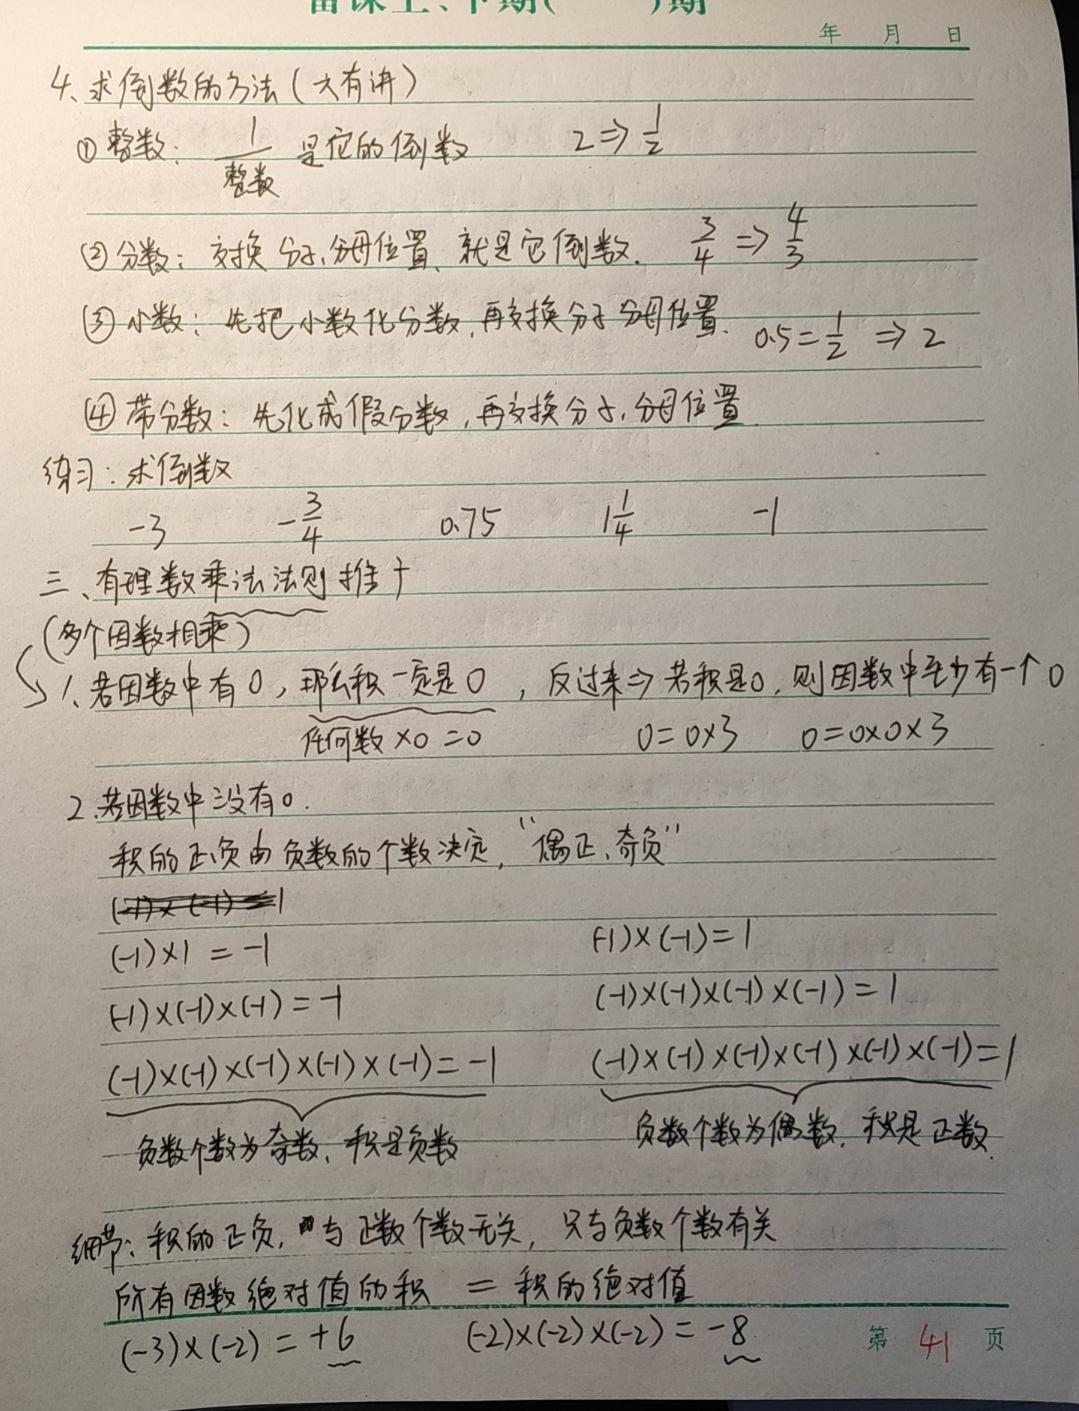 备课上、下期( )期
年 月 日
4、求倒数的方法(大有讲)
① 整数: 1/整数 是它的倒数 2⇒1/2
② 分数: 交换分子、分母位置、就是它倒数. 3/4 ⇒ 4/3
③ 小数: 先把小数化分数, 再交换分子分母位置. 0.5=1/2 ⇒ 2
④ 带分数: 先化成假分数, 再交换分子、分母位置.
练习: 求倒数
-3 -3/4 0.75 1 1/4 -1
三、有理数乘法法则推广
(多个因数相乘)
1、若因数中有0, 那么积一定是0, 反过来⇒若积是0, 则因数中至少有一个0
任何数×0=0 0=0×3 0=0×0×3
2.若因数中没有0.
积的正负由负数的个数决定, “偶正、奇负”
(-1)×(-1)=1
(-1)×1=-1 (-1)×(-1)=1
(-1)×(-1)×(-1)=-1 (-1)×(-1)×(-1)×(-1)=1
(-1)×(-1)×(-1)×(-1)×(-1)=-1 (-1)×(-1)×(-1)×(-1)×(-1)×(-1)=1
负数个数为奇数、积是负数 负数个数为偶数, 积是正数.
细节: 积的正负, 与正数个数无关, 只与负数个数有关
所有因数绝对值的积 = 积的绝对值
(-3)×(-2)=+6 (-2)×(-2)×(-2)=-8
第 41 页